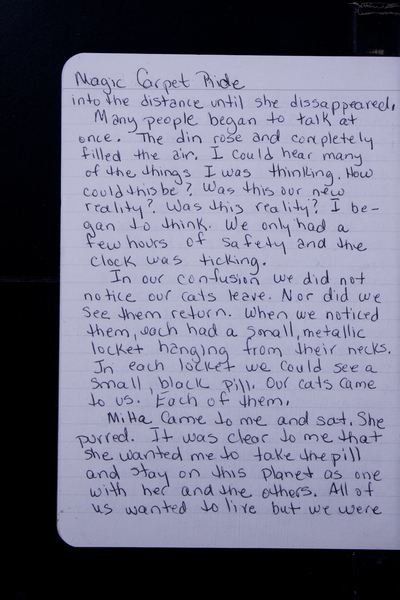 Magic Carpet Ride
into the distance until she dissappeared.
Many people began to talk at
once. The din rose and completely
filled the air. I could hear many
of the things I was thinking. How
could this be? Was this our new
reality? Was this reality? I be-
gan to think. We only had a
few hours of safety and the
clock was ticking.
In our confusion we did not
notice our cats leave. Nor did we
see them return. When we noticed
them, each had a small, metallic
locket hanging from their necks.
In each locket we could see a
small, black pill. Our cats came
to us. Each of them.
Mitta came to me and sat. She
purred. It was clear to me that
she wanted me to take the pill
and stay on this planet as one
with her and the others. All of
us wanted to live but we were